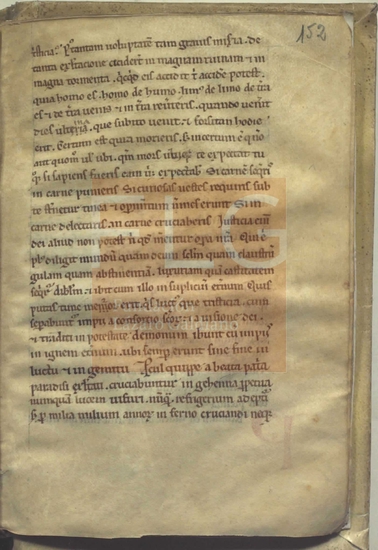 152
tristicia. P' tantam voluptatē tam gravis miseria. de
tanta exaltatione ceciderit in magnam ruinam ⁊ in
magna tormenta. qcqd eis accidit ⁊ accidere potest.
quia homo es. homo de humo. limus de limo de tra
es ⁊ de tra vivis ⁊ in tra reverteris. quando venerit
dies ultima. que subito venit. ⁊ forsitan hodie
erit. Certum est quia morieris. s; incertum ē qmo
aut quom ul' ubi. qm mors ubiq; te expectat tu
q; si sapiens fueris eam ubiq; expectab. Si carnē seqris
in carne puneris Si curiosas vestes requiris sub
te sternetur tinea ⁊ opimentum tuum vermes erunt Si in
carne delectaris in carne cruciaberis Justicia enim
dei aliud non potest n qd merentur opa nra. Qui ē
pl' diligit mundū quam deum selm quam claustrū
gulam quam abstinentiā. luxuriam quā castitatem
seqr diablm. ⁊ ibit cum illo in supliciū etnum. Quis
putas tunc meror erit. qs luct' que tristicia. cum
separabunt' impii a consortio scōr; ⁊ a visione dei.
⁊ traditi in potestate demonum ibunt cū impiis
in ignem etnum. ubi semp erunt sine fine in
luctu ⁊ in gemitu Procul quippe a beata patria
paradisi exulati. cruciabuntur in gehenna ppetua
numquā lucem visuri. nūq; refrigerium adepturi
s; p milia milium annor; in ferno cruciandi neq;